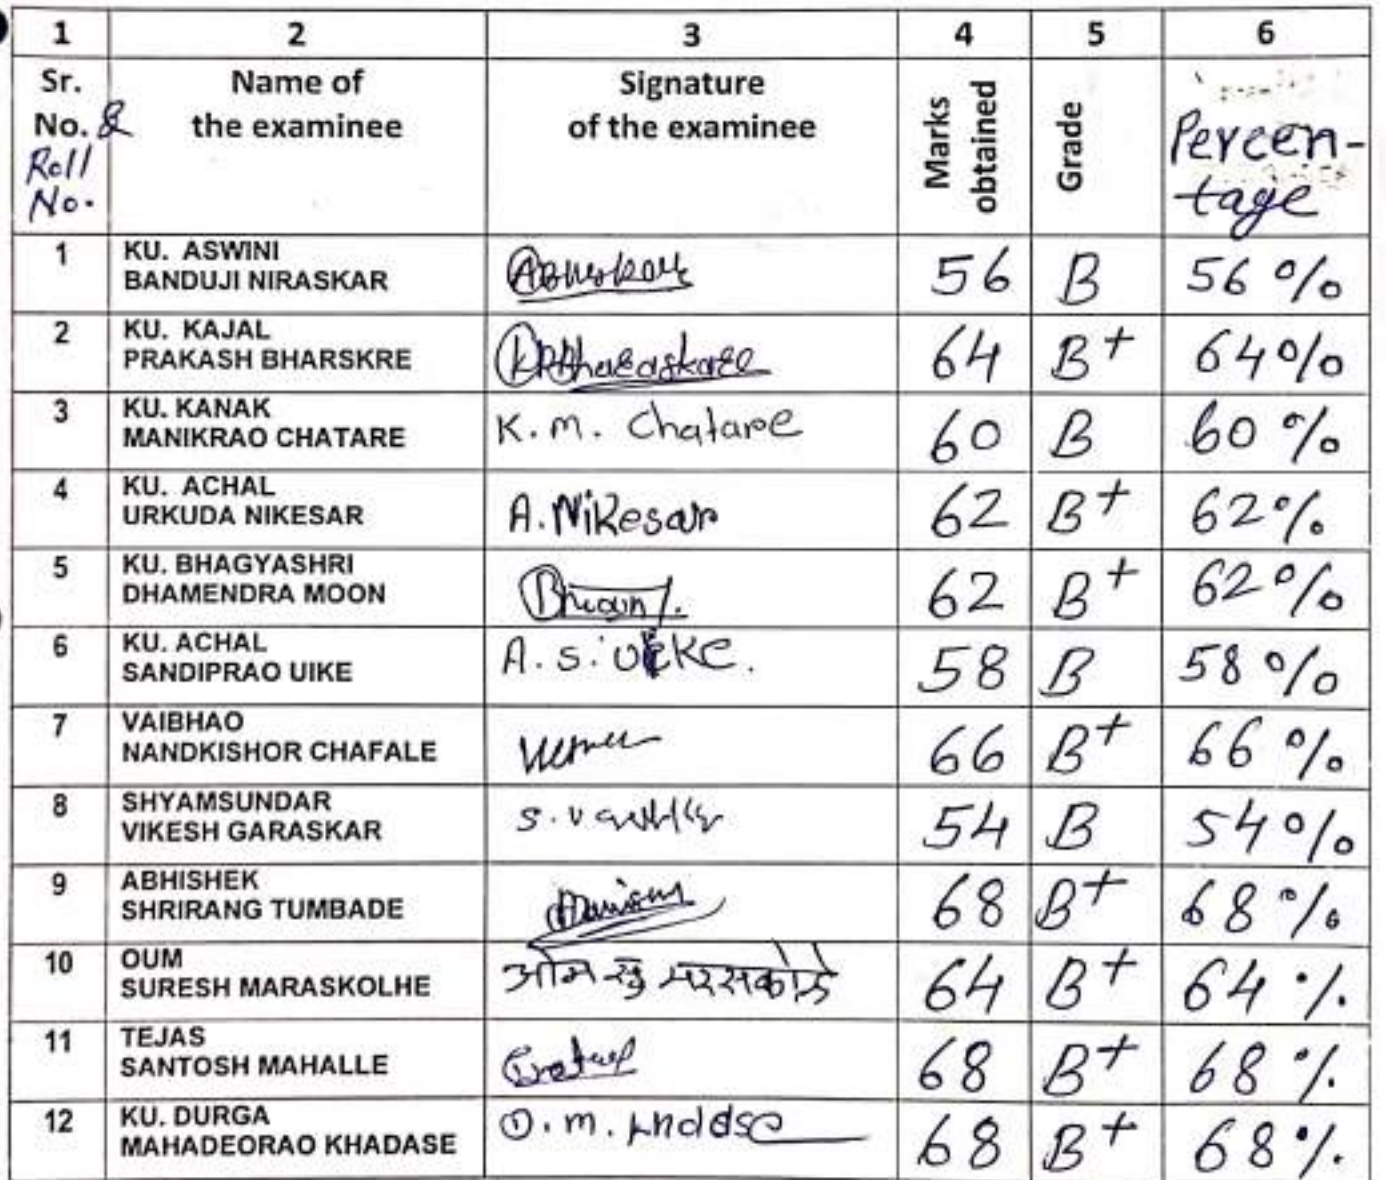 1 2 3 4 5 6
Sr. No. & Roll No. Name of the examinee Signature of the examinee Marks obtained Grade Percen-tage
1 KU. ASWINI BANDUJI NIRASKAR 56 B 56 %
2 KU. KAJAL PRAKASH BHARSKRE 64 B+ 64%
3 KU. KANAK MANIKRAO CHATARE K. m. Chatare 60 B 60 %
4 KU. ACHAL URKUDA NIKESAR A. Nikesar 62 B+ 62%
5 KU. BHAGYASHRI DHAMENDRA MOON 62 B+ 62%
6 KU. ACHAL SANDIPRAO UIKE A. S. UIKE. 58 B 58 %
7 VAIBHAO NANDKISHOR CHAFALE 66 B+ 66 %
8 SHYAMSUNDAR VIKESH GARASKAR 54 B 54%
9 ABHISHEK SHRIRANG TUMBADE 68 B+ 68 %
10 OUM SURESH MARASKOLHE ओम सु मरसकोल्हे 64 B+ 64 %
11 TEJAS SANTOSH MAHALLE 68 B+ 68 %
12 KU. DURGA MAHADEORAO KHADASE D. m. 68 B+ 68 %